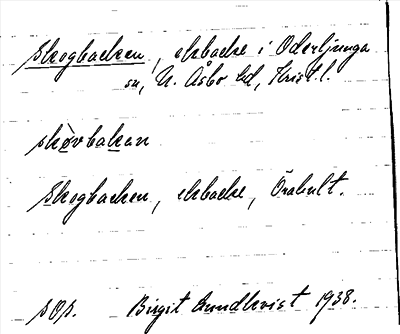 Skogbacken, ekbacke i Oderljunga
sn, N. Åsbo hd, Krist. l.
skòvbakan
Skogbacken, ekbacke, Örahult.
sOp. Birgit Lundkvist 1938.